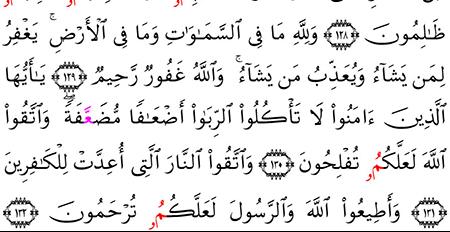 ظَٰلِمُونَ ﴿١٢٨﴾ وَلِلَّهِ مَا فِى ٱلسَّمَٰوَٰتِ وَمَا فِى ٱلْأَرْضِ ۚ يَغْفِرُ
لِمَن يَشَآءُ وَيُعَذِّبُ مَن يَشَآءُ ۚ وَٱللَّهُ غَفُورٌ رَّحِيمٌ ﴿١٢٩﴾ يَٰٓأَيُّهَا
ٱلَّذِينَ ءَامَنُوا۟ لَا تَأْكُلُوا۟ ٱلرِّبَوٰٓا۟ أَضْعَٰفًا مُّضَعَّفَةً ۖ وَٱتَّقُوا۟
ٱللَّهَ لَعَلَّكُمُۥ تُفْلِحُونَ ﴿١٣٠﴾ وَٱتَّقُوا۟ ٱلنَّارَ ٱلَّتِىٓ أُعِدَّتْ لِلْكَٰفِرِينَ
﴿١٣١﴾ وَأَطِيعُوا۟ ٱللَّهَ وَٱلرَّسُولَ لَعَلَّكُمُۥ تُرْحَمُونَ ﴿١٣٢﴾